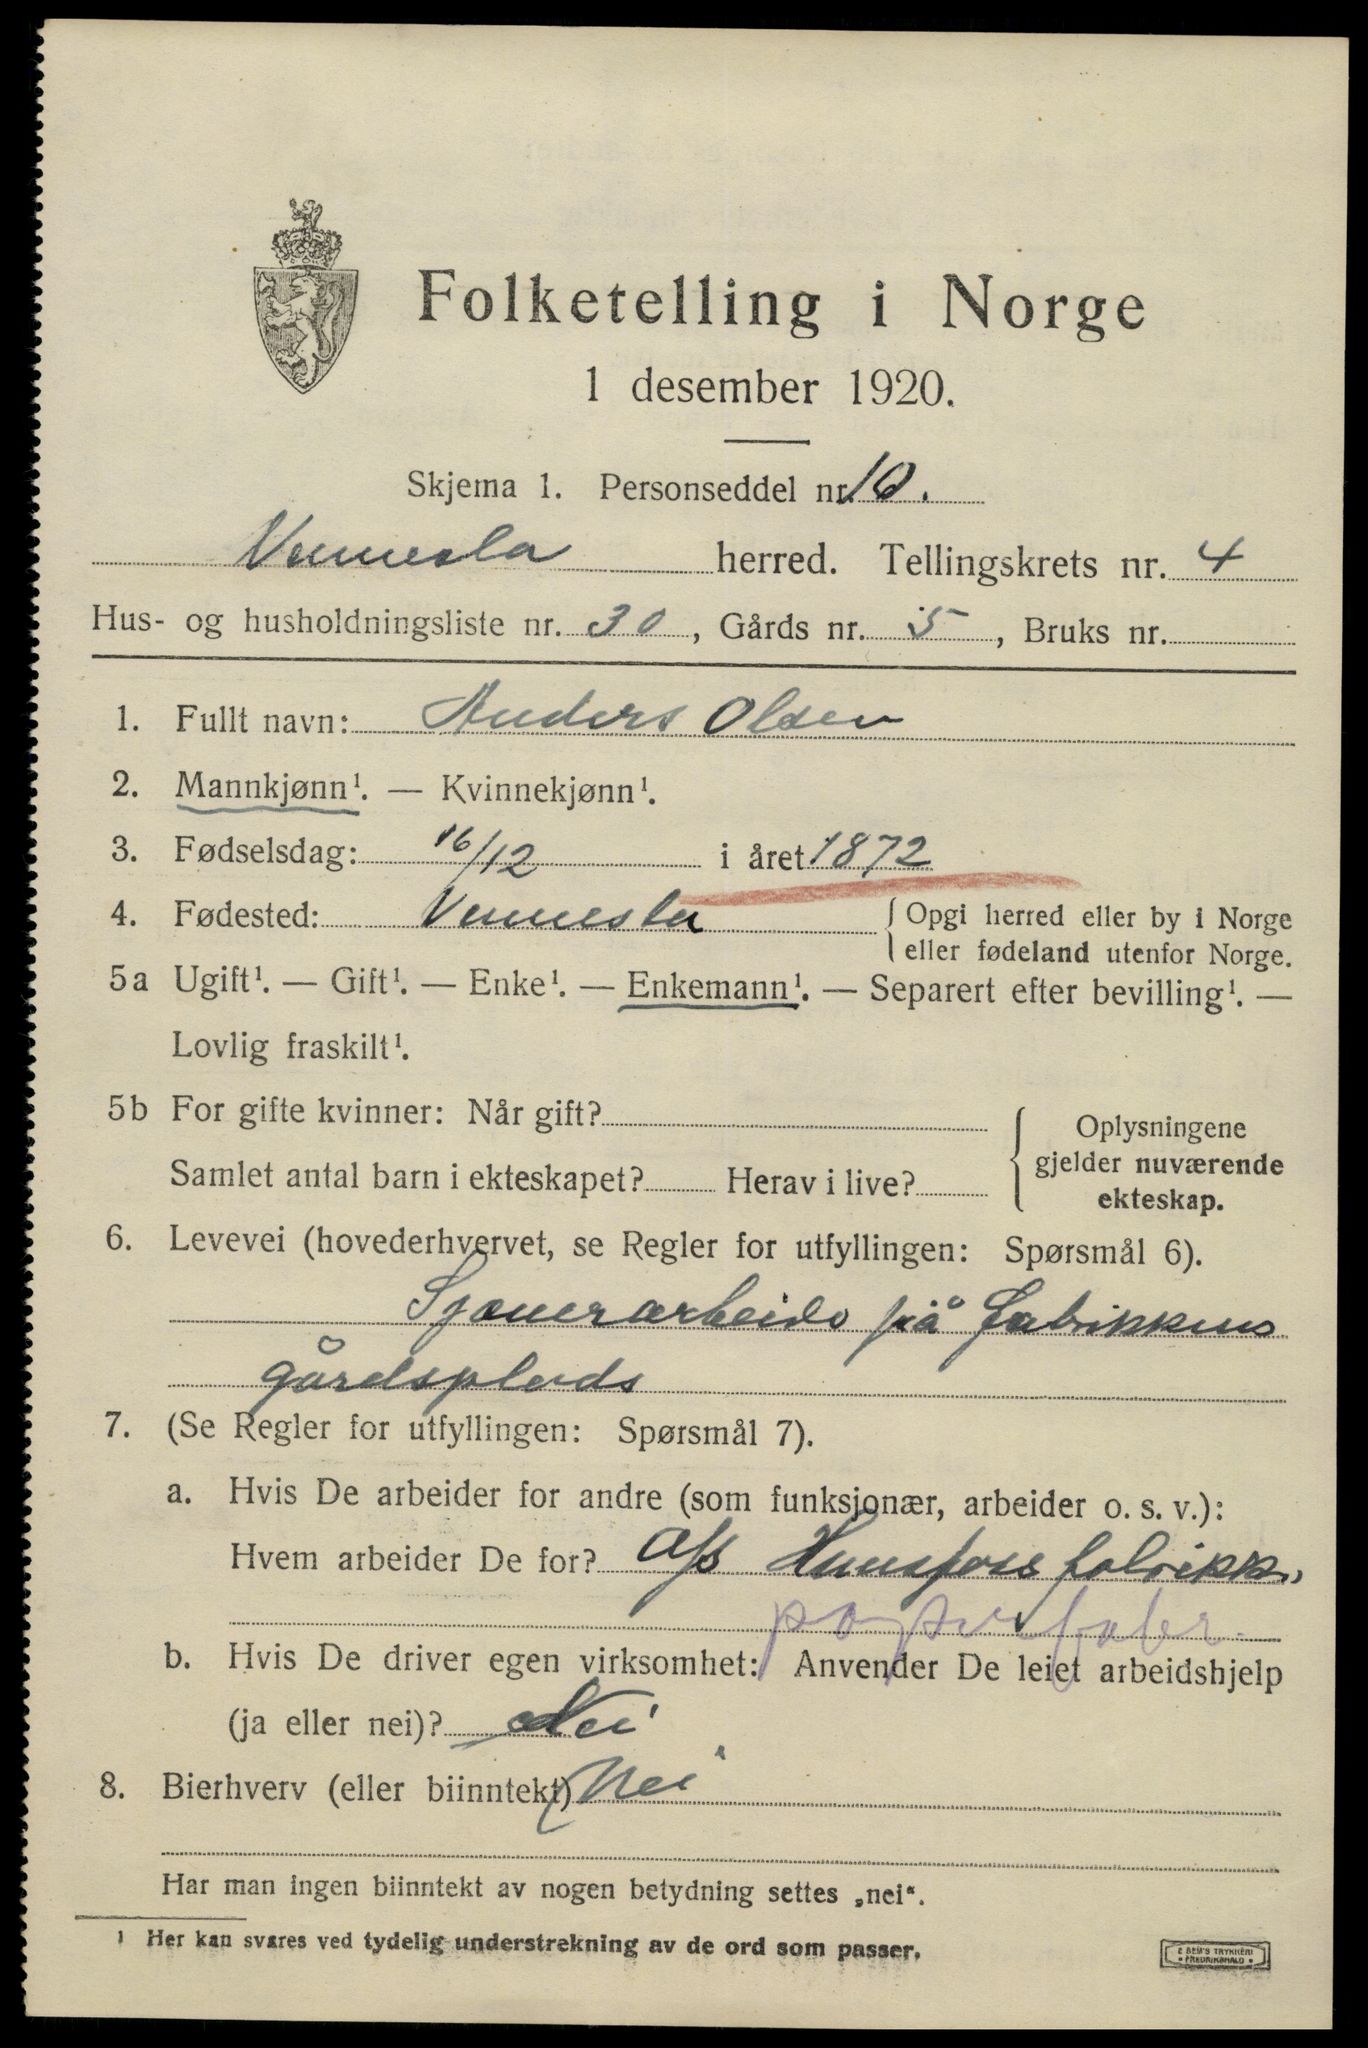 Folketelling i Norge
1 desember 1920.
Skjema 1. Personseddel nr. 10.
Vennesla herred. Tellingskrets nr. 4
Hus- og husholdningsliste nr. 30, Gårds nr. 5, Bruks nr.
1. Fullt navn: Anders Olsen
2. Mannkjønn¹. — Kvinnekjønn¹.
3. Fødselsdag: 16/12 i året 1872
4. Fødested: Vennesla { Opgi herred eller by i Norge
eller fødeland utenfor Norge.
5a Ugift¹. — Gift¹. — Enke¹. — Enkemann¹. — Separert efter bevilling¹. —
Lovlig fraskilt¹.
5b For gifte kvinner: Når gift? { Oplysningene
gjelder nuværende
ekteskap.
Samlet antal barn i ekteskapet? Herav i live?
6. Levevei (hovederhvervet, se Regler for utfyllingen: Spørsmål 6).
Sjauerarbeide på fabrikkens
gårdsplads
7. (Se Regler for utfyllingen: Spørsmål 7).
a. Hvis De arbeider for andre (som funksjonær, arbeider o. s. v.):
Hvem arbeider De for? A/s Hunsfoss fabrikk.
papirfabr.
b. Hvis De driver egen virksomhet: Anvender De leiet arbeidshjelp
(ja eller nei)? Nei
8. Bierhverv (eller biinntekt) Nei
Har man ingen biinntekt av nogen betydning settes „nei“.
1 Her kan svares ved tydelig understrekning av de ord som passer.
E SEM'S TRYKKERI
• FREDRIKSHALD •